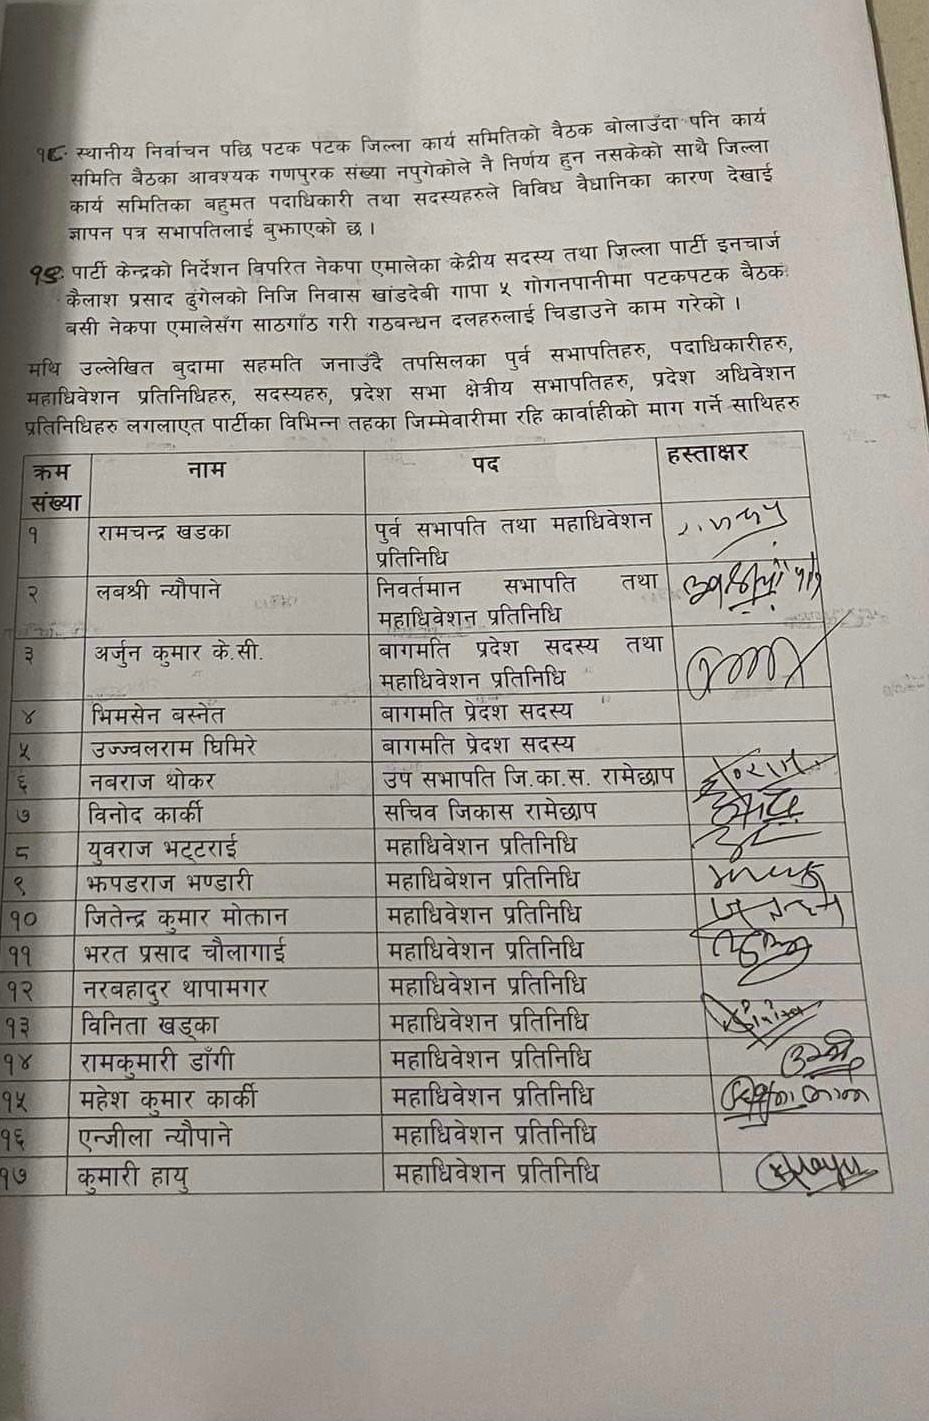 १८. स्थानीय निर्वाचन पछि पटक पटक जिल्ला कार्य समितिको वैठक बोलाउँदा पनि कार्य
समिति बैठका आवश्यक गणपुरक संख्या नपुगेकोले नै निर्णय हुन नसकेको साथै जिल्ला
कार्य समितिका बहुमत पदाधिकारी तथा सदस्यहरुले विविध वैधानिका कारण देखाई
ज्ञापन पत्र सभापतिलाई बुझाएको छ ।
१९. पार्टी केन्द्रको निर्देशन विपरित नेकपा एमालेका केद्रीय सदस्य तथा जिल्ला पार्टी इनचार्ज
कैलाश प्रसाद ढुंगेलको निजि निवास खांडदेबी गापा ५ गोगनपानीमा पटकपटक बैठक
बसी नेकपा एमालेसँग साठगाँठ गरी गठबन्धन दलहरुलाई चिडाउने काम गरेको ।
मथि उल्लेखित बुदामा सहमति जनाउँदै तपसिलका पुर्व सभापतिहरु, पदाधिकारीहरु,
महाधिवेशन प्रतिनिधिहरु, सदस्यहरु, प्रदेश सभा क्षेत्रीय सभापतिहरु, प्रदेश अधिवेशन
प्रतिनिधिहरु लगलाएत पार्टीका विभिन्न तहका जिम्मेवारीमा रहि कार्वाहीको माग गर्ने साथिहरु
क्रम संख्या नाम पद हस्ताक्षर
१ रामचन्द्र खडका पुर्व सभापति तथा महाधिवेशन
प्रतिनिधि
२ लबश्री न्यौपाने निवर्तमान सभापति तथा
महाधिवेशन प्रतिनिधि
३ अर्जुन कुमार के.सी. बागमति प्रदेश सदस्य तथा
महाधिवेशन प्रतिनिधि
४ भिमसेन बस्नेत बागमति प्रेदश सदस्य
५ उज्ज्वलराम घिमिरे बागमति प्रेदश सदस्य
६ नबराज थोकर उप सभापति जि.का.स. रामेछाप
७ विनोद कार्की सचिव जिकास रामेछाप
८ युवराज भट्टराई महाधिवेशन प्रतिनिधि
९ झपडराज भण्डारी महाधिबेशन प्रतिनिधि
१० जितेन्द्र कुमार मोक्तान महाधिवेशन प्रतिनिधि
११ भरत प्रसाद चौलागाई महाधिवेशन प्रतिनिधि
१२ नरबहादुर थापामगर महाधिवेशन प्रतिनिधि
१३ विनिता खड्का महाधिवेशन प्रतिनिधि
१४ रामकुमारी डाँगी महाधिवेशन प्रतिनिधि
१५ महेश कुमार कार्की महाधिवेशन प्रतिनिधि
१६ एन्जीला न्यौपाने महाधिवेशन प्रतिनिधि
१७ कुमारी हायु महाधिवेशन प्रतिनिधि